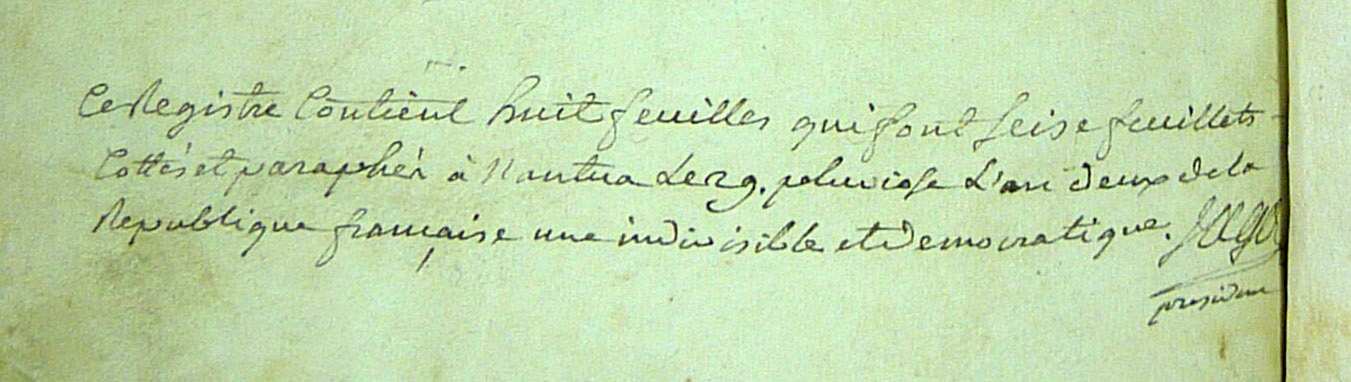 Ce Registre Contient huit feuilles qui font seise feuillets
Cottés et paraphés à Nantua le 29. pluviose L'an deux de la
Republique française une indivisible et democratique.
president